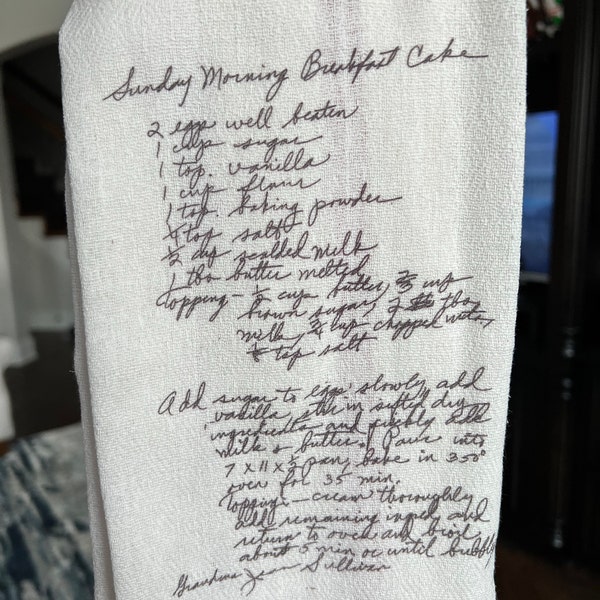 Sunday Morning Breakfast Cake
2 eggs well beaten
1 cup sugar
1 tsp. vanilla
1 cup flour
1 tsp. baking powder
tsp salt
1/2 cup scalded milk
1 tbs butter melted
Topping - cup butter, 2/3 cup
brown sugar, 2 tbs
milk, 3/4 cup chopped nuts,
tsp salt
Add sugar to eggs slowly, add
vanilla, stir in sifted dry
ingredients and quickly add
milk & butter. Pour into
7 x 11 x pan, bake in 350°
oven for 35 min.
Topping - cream thoroughly
add remaining ingred. and
return to oven and broil
about 5 min or until bubbly
Grandma Jean Sullivan